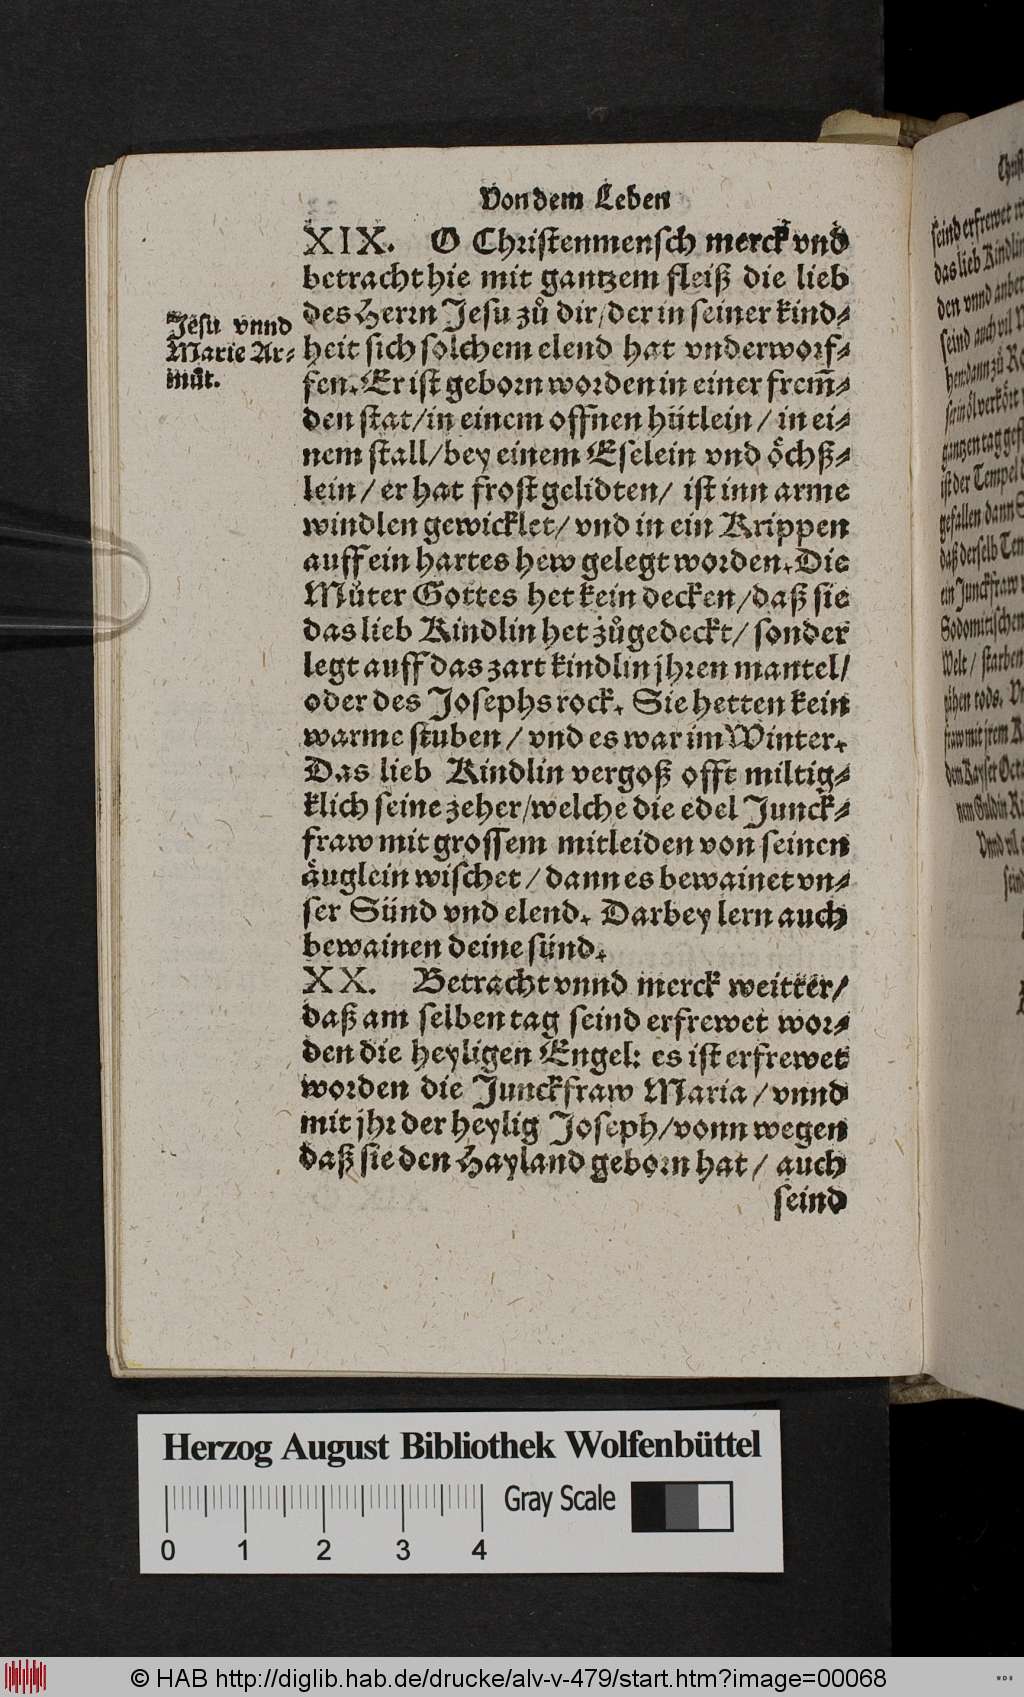 Von dem Leben
XIX. O Christenmensch merck vnd
betracht hie mit gantzem fleiß die lieb
des Herrn Jesu zů dir/der in seiner kind⸗
heit sich solchem elend hat vnderworf⸗
fen. Er ist geborn worden in einer frem̄⸗
den stat/in einem offnen hütlein / in ei⸗
nem stall/bey einem Eselein vnd öchß⸗
lein / er hat frost gelidten/ ist inn arme
windlen gewicklet/ vnd in ein Krippen
auff ein hartes hew gelegt worden. Die
Můter Gottes het kein decken/daß sie
das lieb Kindlin het zůgedeckt/ sonder
legt auff das zart kindlin jhren mantel/
oder des Josephs rock. Sie hetten kein
warme stuben / vnd es war im Winter.
Das lieb Kindlin vergoß offt miltig⸗
klich seine zeher/welche die edel Junck⸗
fraw mit grossem mitleiden von seinen
äuglein wischet / dann es bewainet vn⸗
ser Sünd vnd elend. Darbey lern auch
bewainen deine sünd.
XX. Betracht vnnd merck weitter/
daß am selben tag seind erfrewet wor⸗
den die heyligen Engel: es ist erfrewet
worden die Junckfraw Maria / vnnd
mit jhr der heylig Joseph/vonn wegen
daß sie den Hayland geborn hat / auch
seind
Jesu vnnd
Marie Ar⸗
můt.
seind erfrewet
das lieb Kindlin
den vnnd anbet
seind auch vil
hen: dann zů
gantzen tag
ist der Tempel
gefallen dann
daß derselb
ein Junckfraw
Sodomitischen
Welt / starben
gähen tods.
fraw mit jrem
den Kayser
nem Guldin
Vnnd vil
Herzog August Bibliothek Wolfenbüttel
Gray Scale
0 1 2 3 4
© HAB http://diglib.hab.de/drucke/alv-v-479/start.htm?image=00068